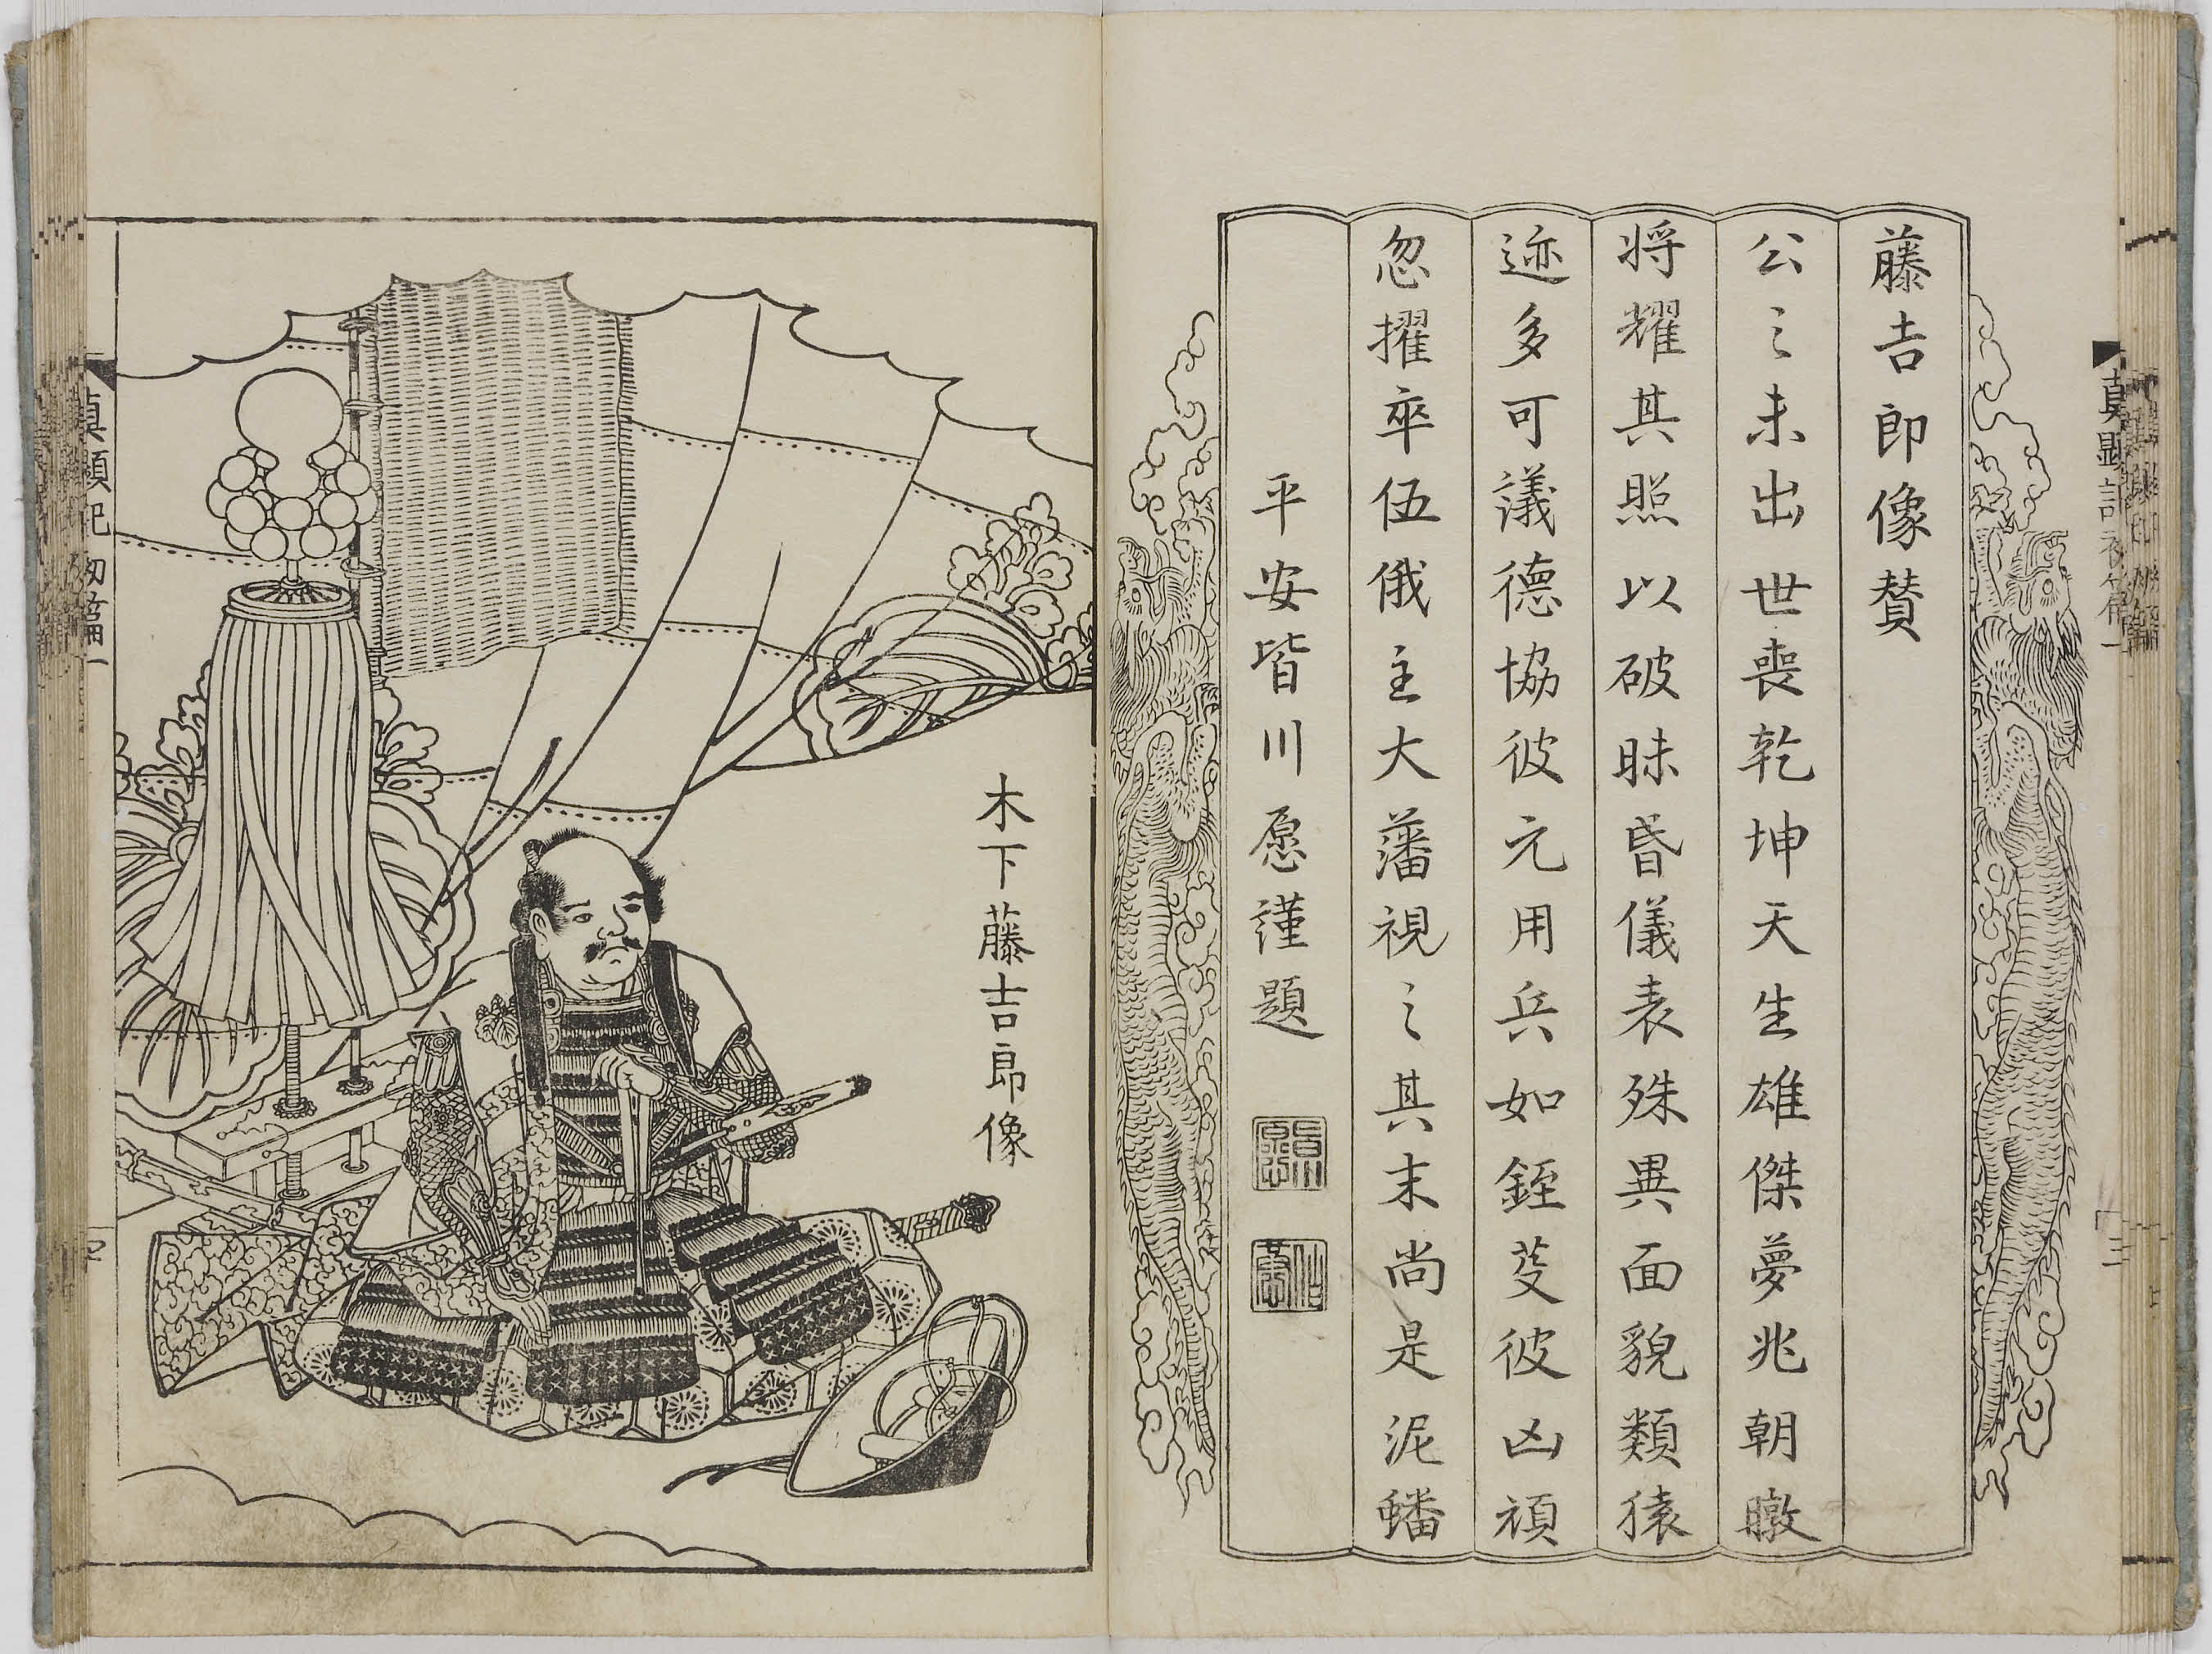 藤吉郎像賛
公之未出世喪乾坤天生雄傑夢兆朝暾
将耀其照以破昧昏儀表殊異面貌類猿
迹多可議德協彼元用兵如銍芟彼凶頑
忽擢卒伍俄主大藩視之其末尚是泥蟠
平安皆川愿謹題
木下藤吉郎像
真顕記初篇一